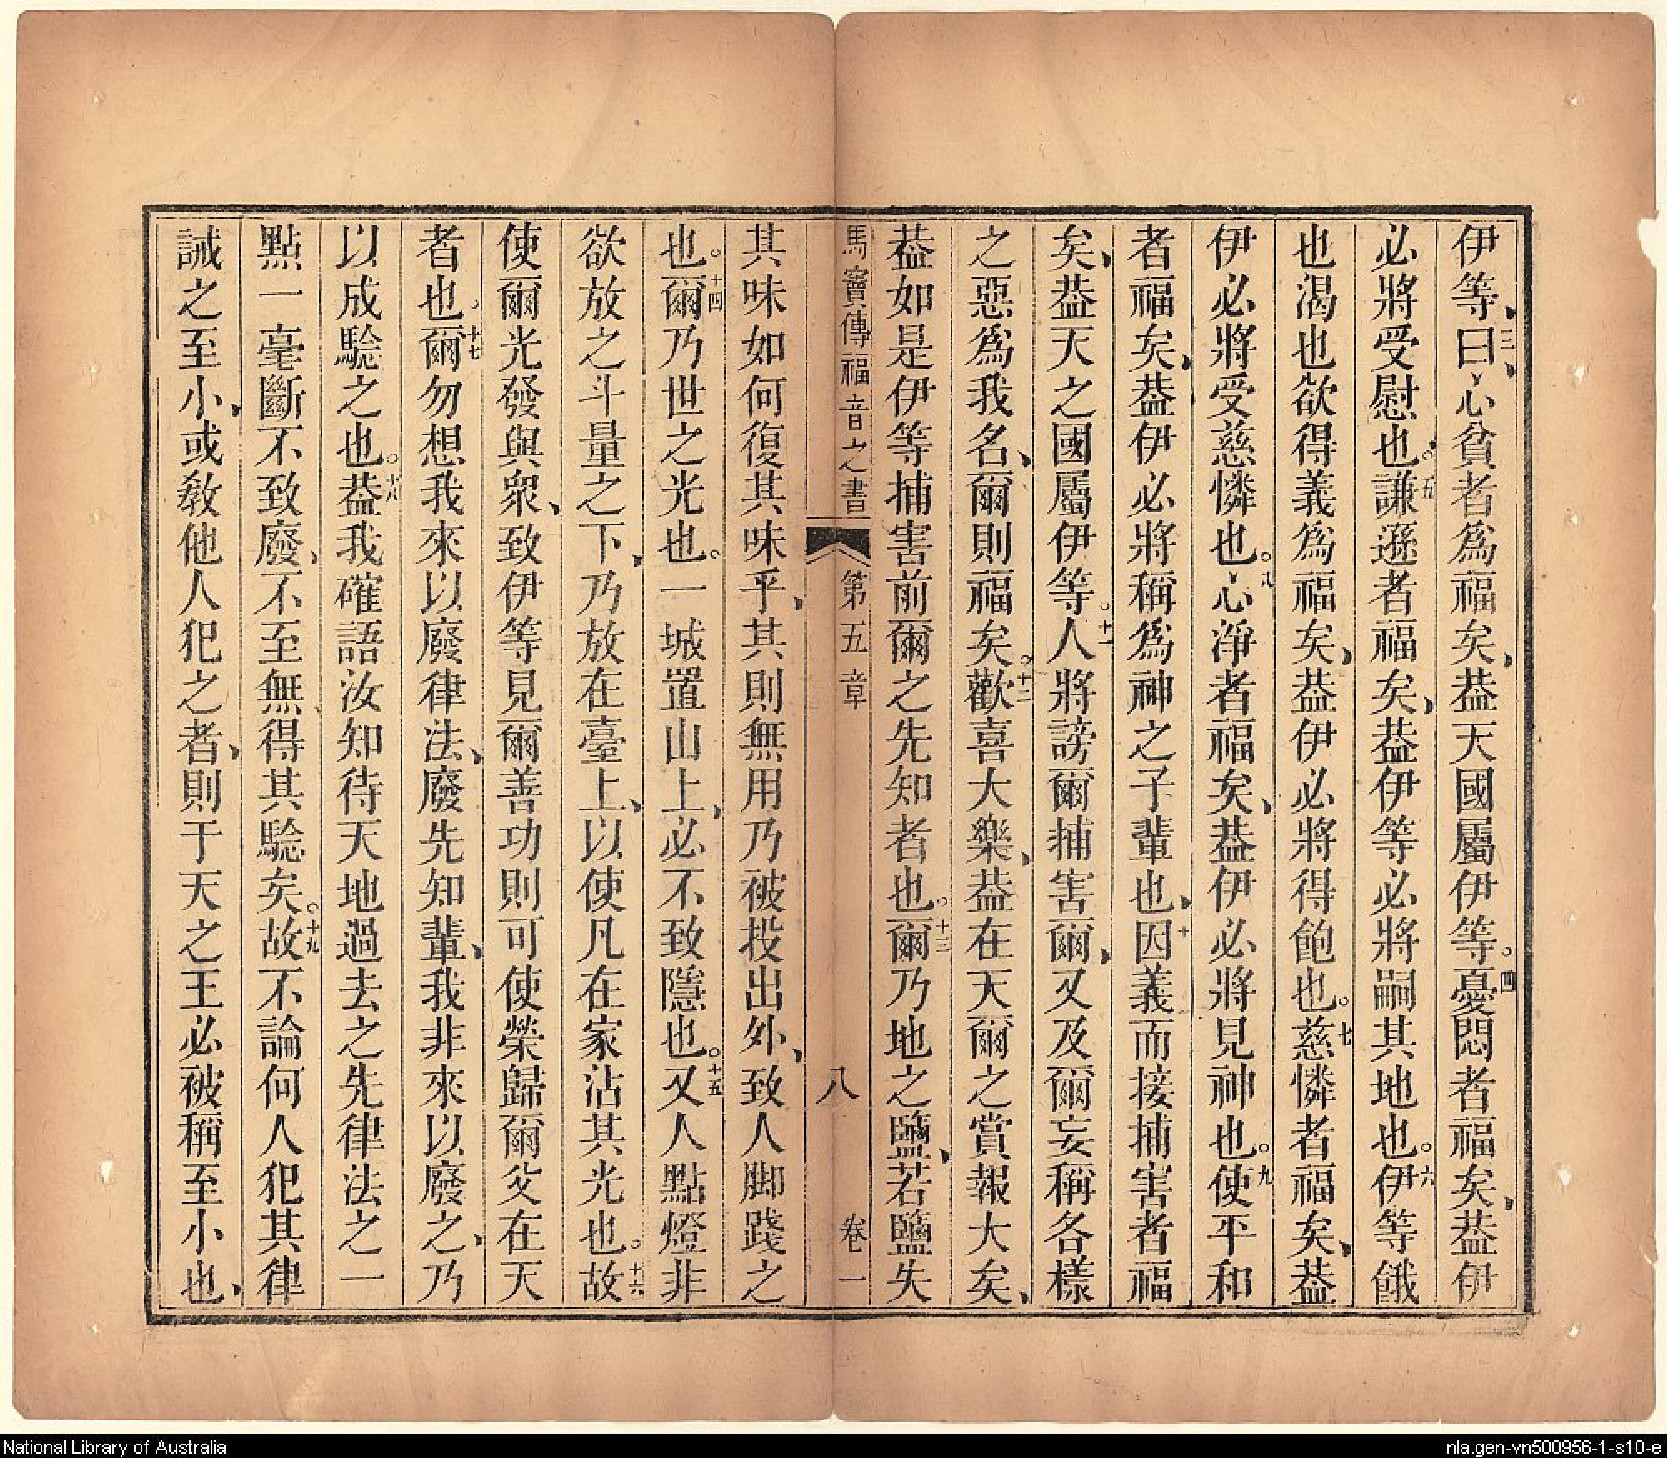 伊等、三曰、心貧者為福矣、葢天國屬伊等。四憂悶者福矣、葢伊
必將受慰也。五謙遜者福矣、葢伊等必將嗣其地也。六伊等餓
也渴也欲得義為福矣、葢伊必將得飽也。七慈憐者福矣、葢
伊必將受慈憐也。八心淨者福矣、葢伊必將見神也。九使平和
者福矣、葢伊必將稱為神之子輩也、十因義而接捕害者福
矣、葢天之國屬伊等。十一人將謗爾捕害爾、又及爾妄稱各樣
之惡為我名、爾則福矣。十二歡喜大樂、葢在天爾之賞報大矣、
葢如是伊等捕害前爾之先知者也。十三爾乃地之鹽、若鹽失
馬竇傳福音之書 第五章 八 卷一
其味如何復其味乎、其則無用乃被投出外、致人脚踐之
也。十四爾乃世之光也。一城置山上、必不致隱也。十五又人點燈非
欲放之斗量之下、乃放在臺上、以使凡在家沾其光也。十六故
使爾光發與衆、致伊等見爾善功則可使榮歸爾父在天
者也。十七爾勿想我來以廢律法、廢先知輩、我非來以廢之、乃
以成驗之也。十八葢我確語汝知待天地過去之先律法之一
點一毫斷不致廢、不至無得其驗矣。十九故不論何人犯其律
誡之至小、或敎他人犯之者、則于天之王必被稱至小也、
National Library of Australia
nla.gen-vn500956-1-s10-e